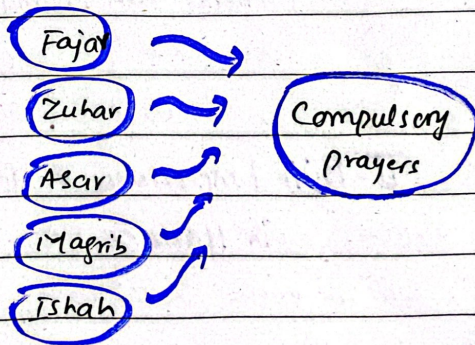 Fajar
Zuhar
Asar
Magrib
Ishah
Compulsory
prayers